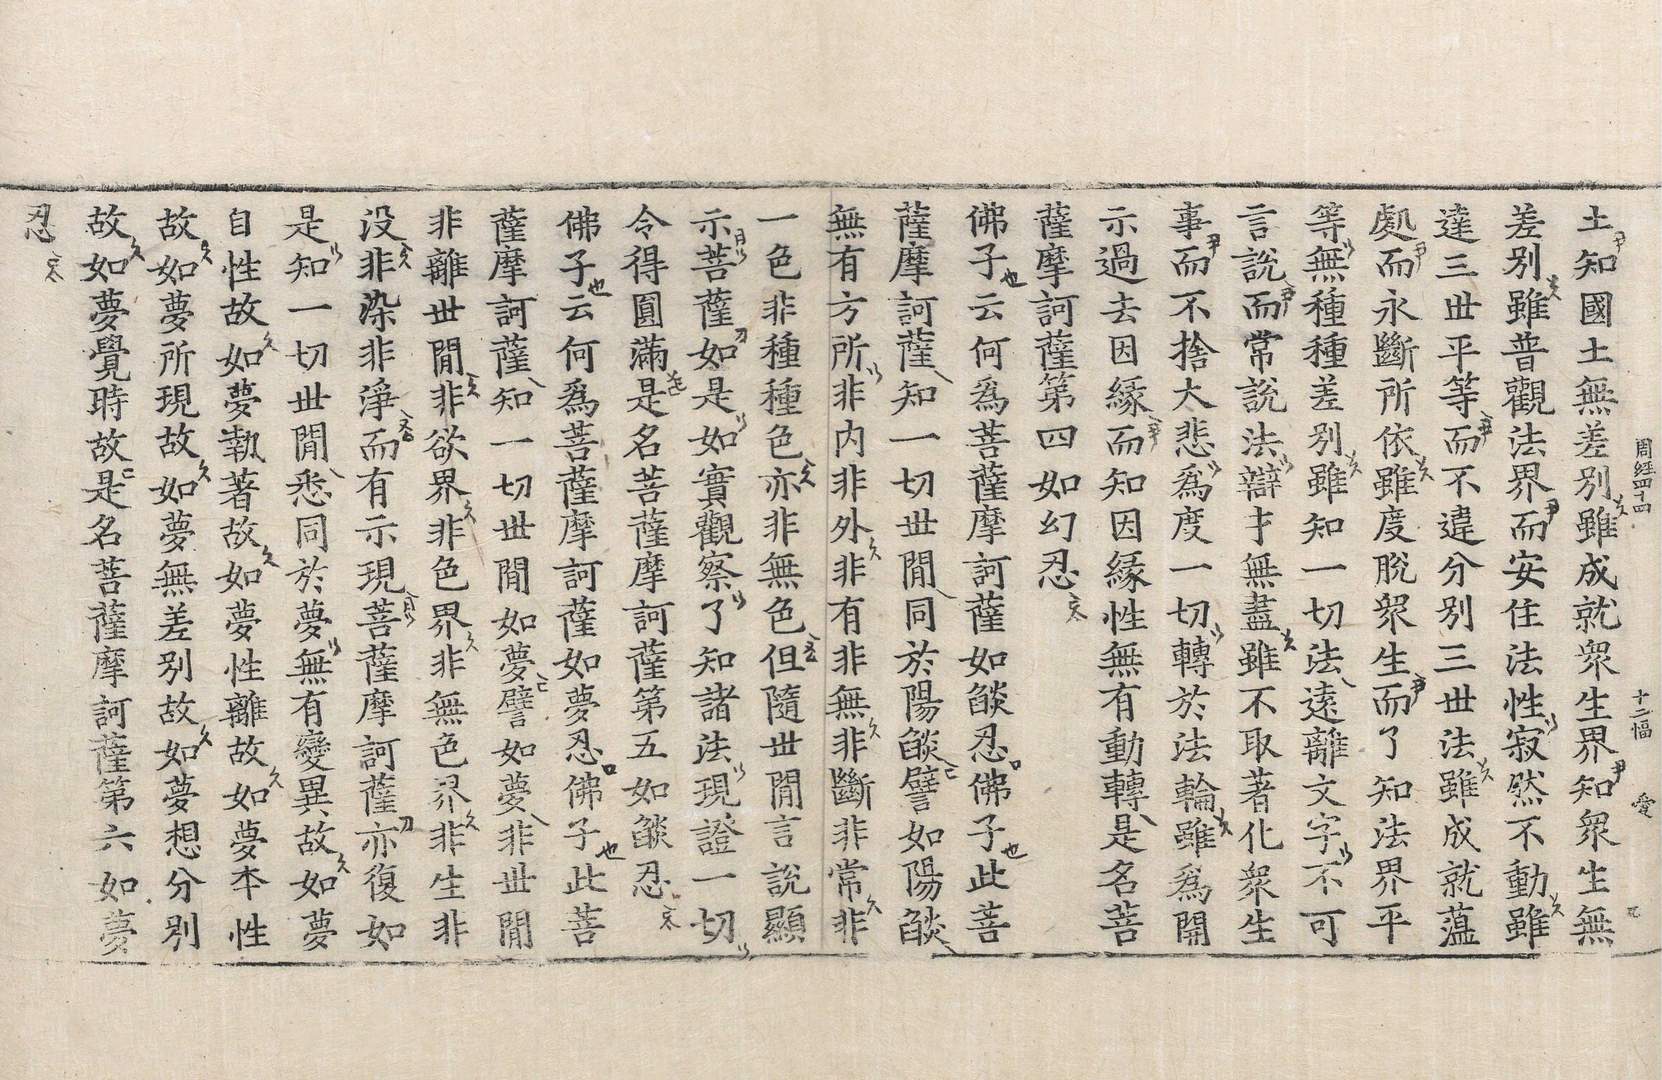 周經四十四 十二幅 愛
土知國土無差別雖成就衆生界知衆生無
差別雖普觀法界而安住法性寂然不動雖
達三世平等而不違分別三世法雖成就蘊
處而永斷所依雖度脫衆生而了知法界平
等無種種差別雖知一切法遠離文字不可
言說而常說法辯才無盡雖不取著化衆生
事而不捨大悲爲度一切轉於法輪雖爲開
示過去因緣而知因緣性無有動轉是名菩
薩摩訶薩第四如幻忍
佛子云何爲菩薩摩訶薩如燄忍佛子此菩
薩摩訶薩知一切世閒同於陽燄譬如陽燄
無有方所非內非外非有非無非斷非常非
一色非種種色亦非無色但隨世閒言說顯
示菩薩如是如實觀察了知諸法現證一切
令得圓滿是名菩薩摩訶薩第五如燄忍
佛子云何爲菩薩摩訶薩如夢忍佛子此菩
薩摩訶薩知一切世閒如夢譬如夢非世閒
非離世閒非欲界非色界非無色界非生非
没非染非淨而有示現菩薩摩訶薩亦復如
是知一切世閒悉同於夢無有變異故如夢
自性故如夢執著故如夢性離故如夢本性
故如夢所現故如夢無差別故如夢想分別
故如夢覺時故是名菩薩摩訶薩第六如夢
忍